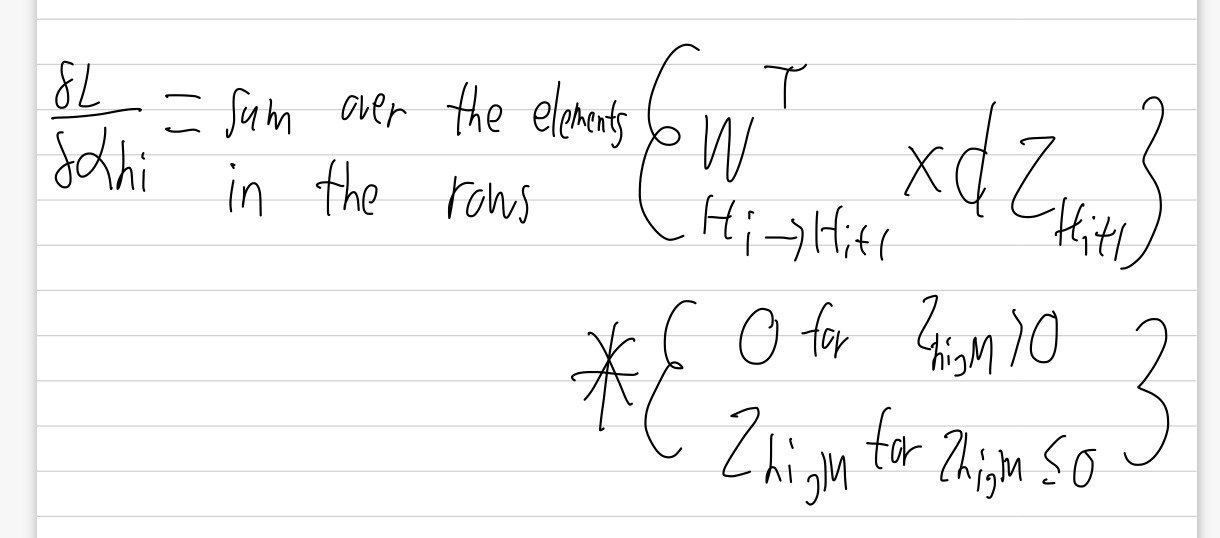 δL/δαhi = Sum over the elements in the rows { W^T_{Hi→Hi+1} x dZ_{Hi+1} }
* { 0 for Z_{hi,m} > 0
Z_{hi,m} for Z_{hi,m} ≤ 0 }